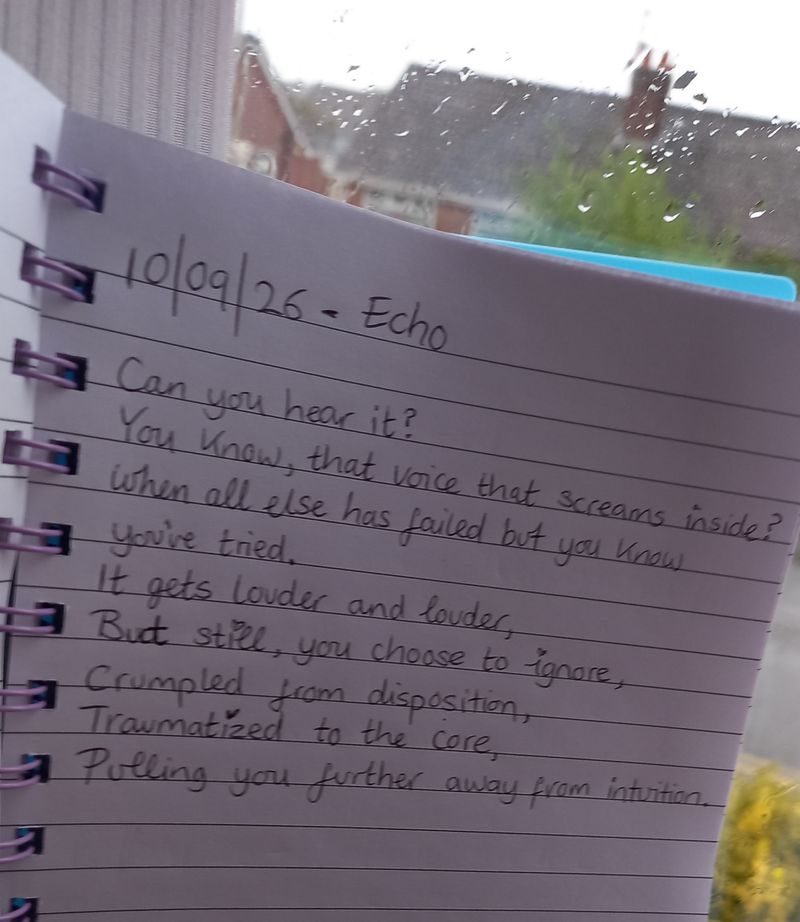 10/09/26 - Echo
Can you hear it?
You know, that voice that screams inside?
when all else has failed but you know
you've tried.
It gets louder and louder,
But still, you choose to ignore,
Crumpled from disposition,
Traumatized to the core,
Pulling you further away from intuition.